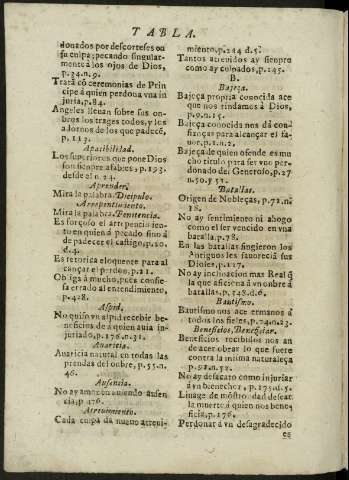 TABLA.
donados por descorteses ou
su culpa; pecando singular-
mente à los ojos de Dios,
p.34.n.9.
Trata cō ceremonias de Prin
cipe à quien perdona vna in
juria, p.84.
Angeles lleuan sobre sus on-
bros los trages todos, y los
adornos de los que padecē,
p.113.
Apacibilidad.
Los superiores que pone Dios
son sienpre afables, p.193.
desde el n.24.
Aprender.
Mira la palabra. Dicipulo.
Arrepentimiento.
Mira la palabra. Penitencia.
Es forçoso el arrepentimien-
to en quien à pecado sino à
de padecer el castigo, p.20.
d.4.
Es retorica eloquente para al
cançar el perdon, p.21.
Obliga à mucho, pues confie-
sa errado al entendimiento,
p.428.
Aspid.
No quiso vn aspid recebir be-
neficios de à quien auia in-
juriado, p.176.n.31.
Auaricia.
Auaricia natural en todas las
prendas del onbre, p.55.n.
46.
Ausencia.
No ay amor en auiendo ausen
cia, p 476.
Atreuimiento.
Cada culpa da nueuo atreui-
miento, p.244 d.5.
Tantos atreuidos ay sienpre
como ay culpados, p.245.
B.
Bajeça.
Bajeça propria conocida ace
que nos rindamos à Dios,
p.9.n.15.
Bajeça conocida nos dà con-
fianças para alcançar el fa-
uor, p.11.n.2.
Bajeça de quien ofende es mu
cho titulo para ser vno per-
donado del Generoso, p.27
n.50.y 51.
Batallas.
Origen de Nobleças, p.72.n.
18.
No ay sentimiento ni ahogo
como el ser vencido en vna
batalla, p.78.
En las batallas fingieron los
Antiguos les fauorecia sus
Dioses, p.117.
No ay inclinacion mas Real q̃
la que aficiona à vn onbre à
batallas, p.348.d.6.
Bautismo.
Bautismo nos ace ermanos à
todos los fieles, p.74.n.23.
Beneficios, Beneficiar.
Beneficios recibidos nos an
de acer obrar lo que fuere
contra la misma naturaleça
p.92.n.52.
No ay desacato como injuriar
à vn bienechor, p.175.d.5.
Linage de mostro dad desear
la muerte à quien nos bene-
ficia, p.176.
Perdonar à vn desagradecido
es